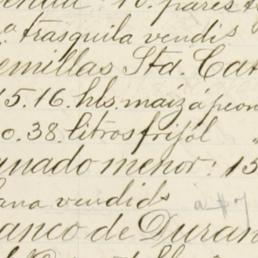 10. pares
trasquila vendis
emillas Sta. Cat
15.16. hls. maíz á peon
0.38. litros frijol
anado menor: 15
ana vendids
anco de Duran